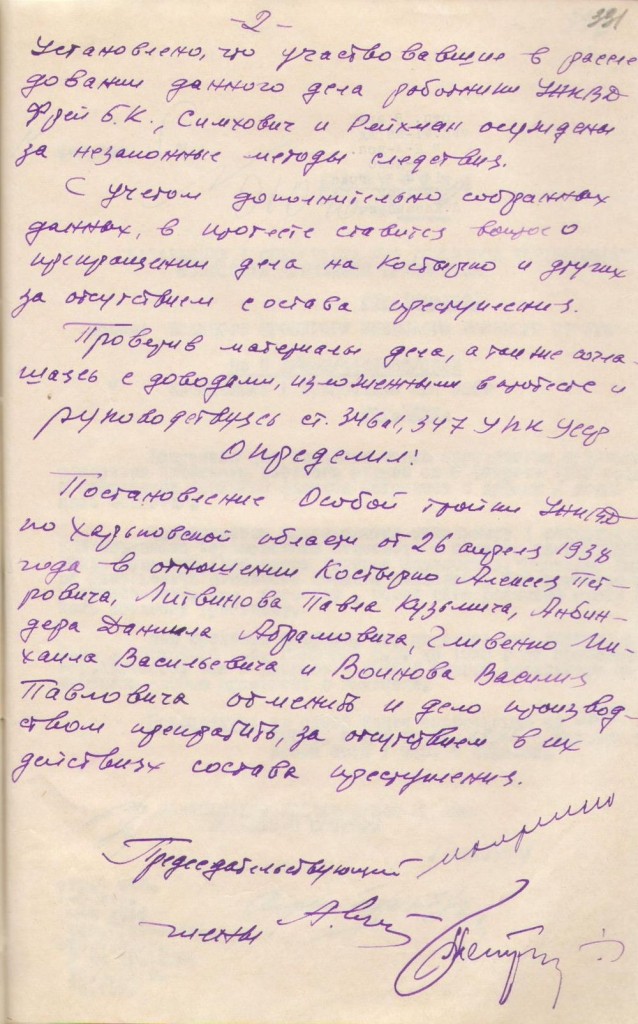 -2-
331
Установлено, что участвовавшие в рассле
довании данного дела работники УНКВД
Фрей Б.К., Симхович и Рейхман осуждены
за незаконные методы следствия.
С учетом дополнительно собранных
данных, в протесте ставится вопрос о
прекращении дела на Костырко и других
за отсутствием состава преступления.
Проверив материалы дела, а также согла-
шаясь с доводами, изложенными в протесте и
руководствуясь ст. 346а1, 347 УПК УССР
Определил!
Постановление Особой тройки УНКВД
по Харьковской области от 26 апреля 1938
года в отношении Костырко Алексея Пет-
ровича, Литвинова Павла Кузьмича, Анбин-
дера Даниила Абрамовича, Гливенко Ми-
хаила Васильевича и Воинова Василия
Павловича отменить и дело производ-
ством прекратить, за отсутствием в их
действиях состава преступления.
Председательствующий
члены